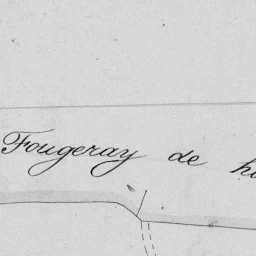 Fougeray de h